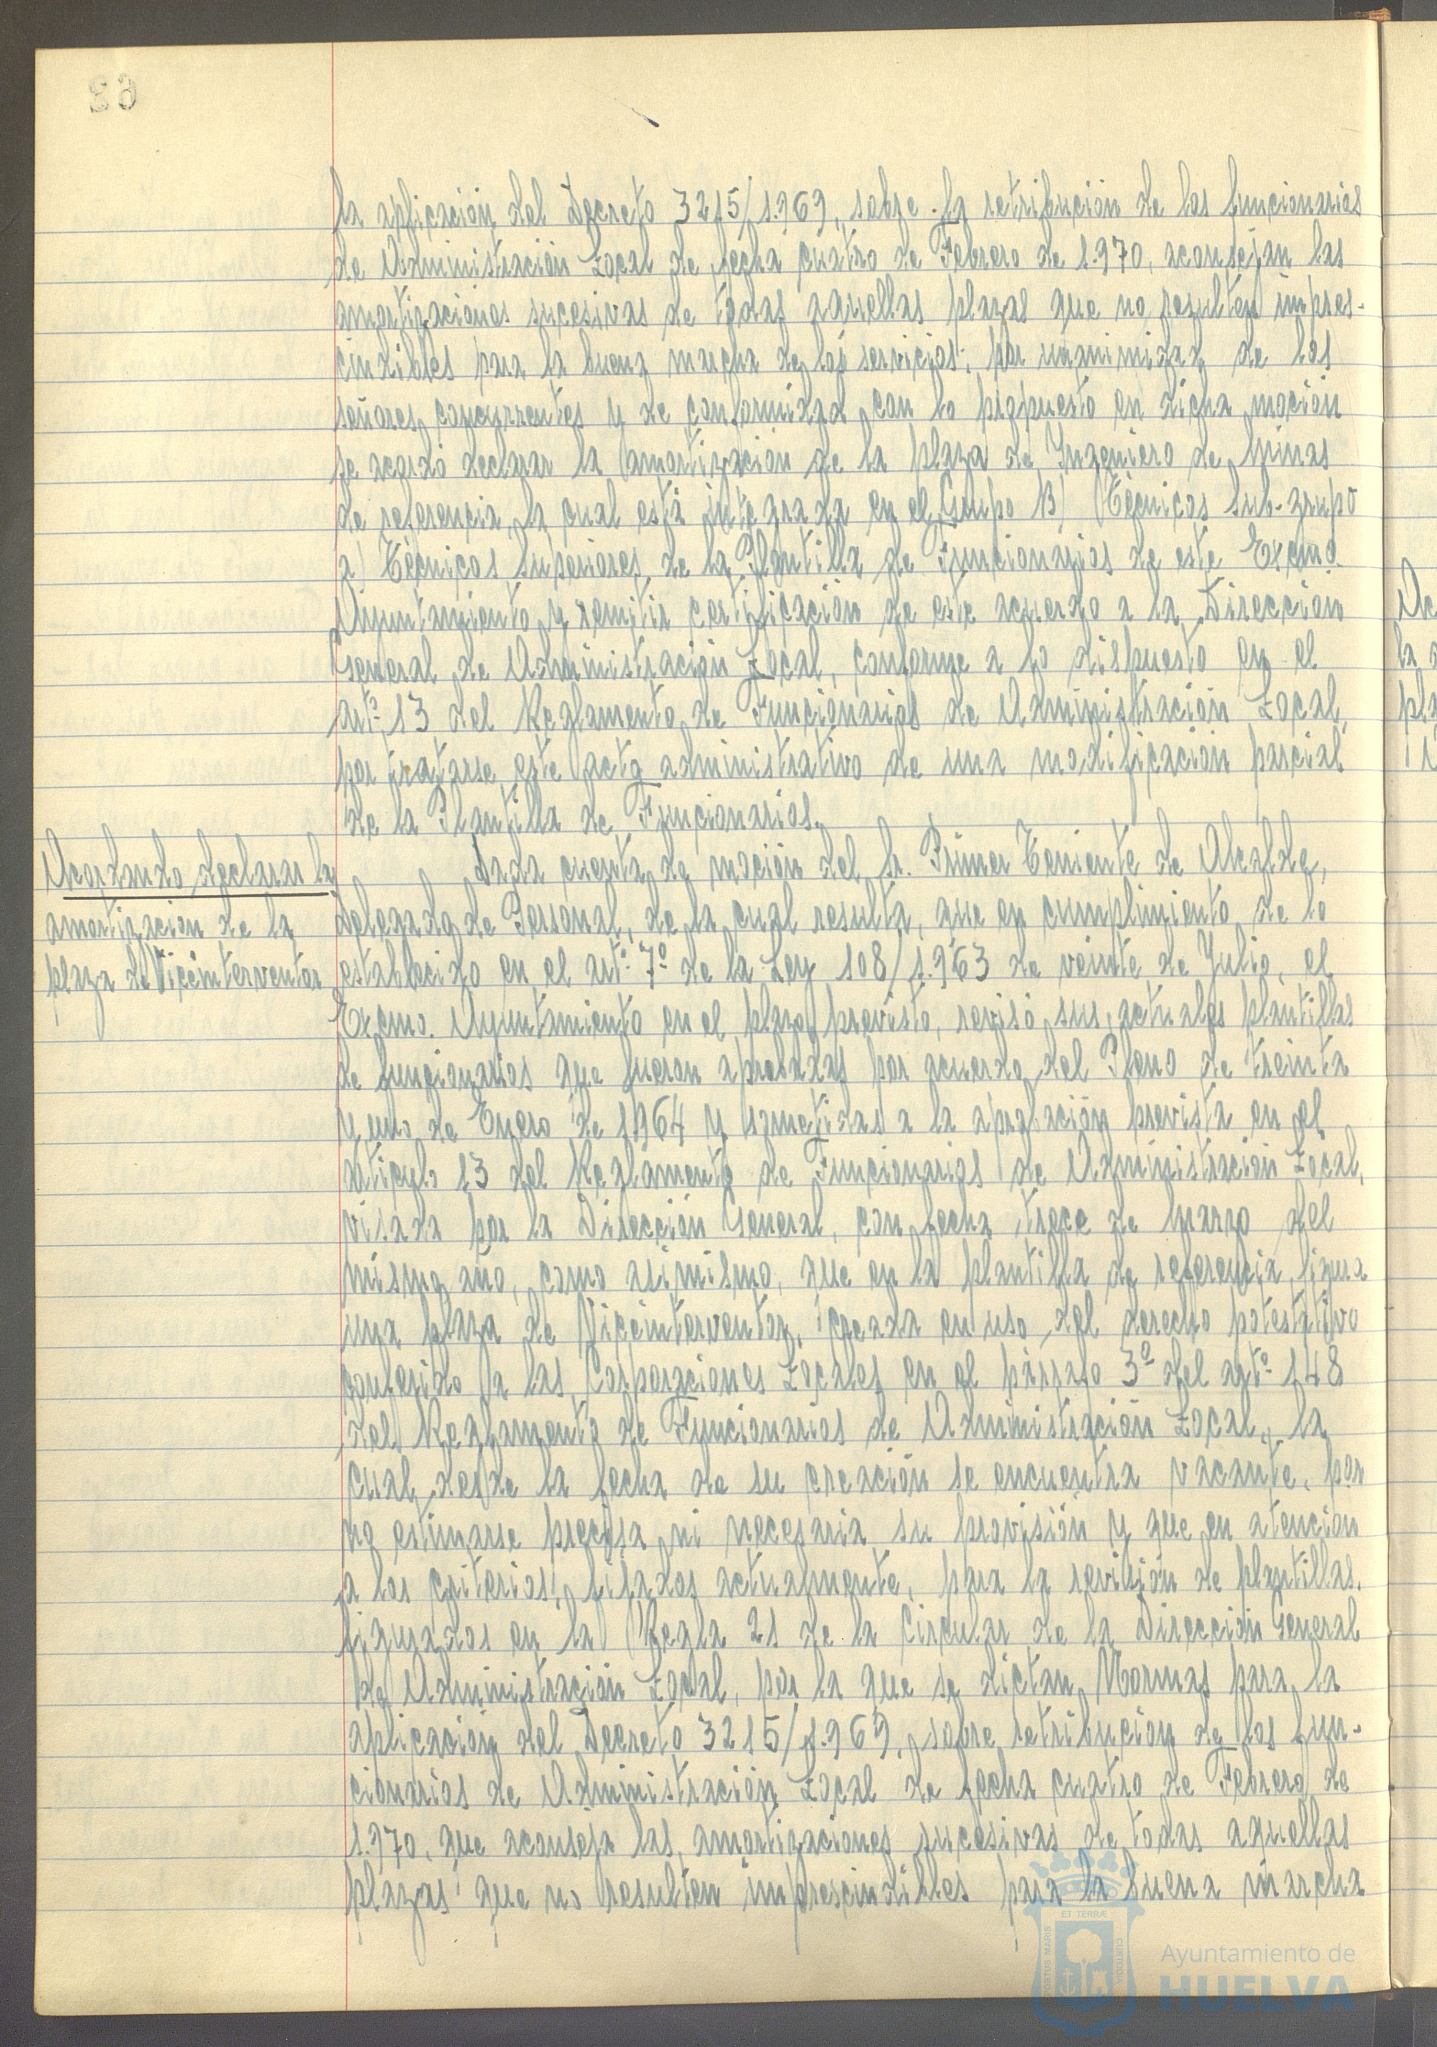 la aplicación del Decreto 3215/1.969, sobre la retribución de los funcionarios
de Administración Local de fecha cuatro de Febrero de 1.970, aconsejan las
amortizaciones sucesivas de todas aquellas plazas que no resulten impres-
cindibles para la buena marcha de los servicios; por unanimidad de los
señores concurrentes y de conformidad con lo propuesto en dicha moción
se acordó declarar la amortización de la plaza de Ingeniero de Minas
de referencia, la cual está integrada en el Grupo B) Técnicos sub-grupo
a) Técnicos Superiores, de la Plantilla de Funcionarios de este Excmo.
Ayuntamiento y remitir certificación de este acuerdo a la Dirección
General de Administración Local, conforme a lo dispuesto en el
artº 13 del Reglamento de Funcionarios de Administración Local,
por tratarse este acto administrativo de una modificación parcial
de la Plantilla de Funcionarios.
Acordando declarar la
amortización de la
plaza de Viceinterventor
Dada cuenta de moción del Sr. Primer Teniente de Alcalde,
delegado de Personal, de la cual resulta, que en cumplimiento de lo
establecido en el artº 7º de la Ley 108/1.963 de veinte de Julio, el
Excmo. Ayuntamiento en el plazo previsto, revisó sus actuales plantillas
de funcionarios que fueron aprobadas por acuerdo del Pleno de treinta
y uno de Enero de 1964 y sometidas a la aprobación prevista en el
artículo 13 del Reglamento de Funcionarios de Administración Local,
visada por la Dirección General, con fecha trece de Marzo del
mismo año, como asimismo, que en la plantilla de referencia, figura
una plaza de Viceinterventor, creada en uso del derecho potestativo
conferido a las Corporaciones Locales en el párrafo 3º del artº 148
del Reglamento de Funcionarios de Administración Local, la
cual desde la fecha de su creación se encuentra vacante, por
no estimarse precisa ni necesaria su provisión y que en atención
a los criterios, fijados actualmente, para la revisión de plantillas,
figurados en la Regla 21 de la Circular de la Dirección General
de Administración Local, por la que se dictan Normas para la
aplicación del Decreto 3215/1.969, sobre retribución de los fun-
cionarios de Administración Local de fecha cuatro de Febrero de
1.970, que aconseja las amortizaciones sucesivas de todas aquellas
plazas que no resulten imprescindibles para la buena marcha
Ayuntamiento de
HUELVA